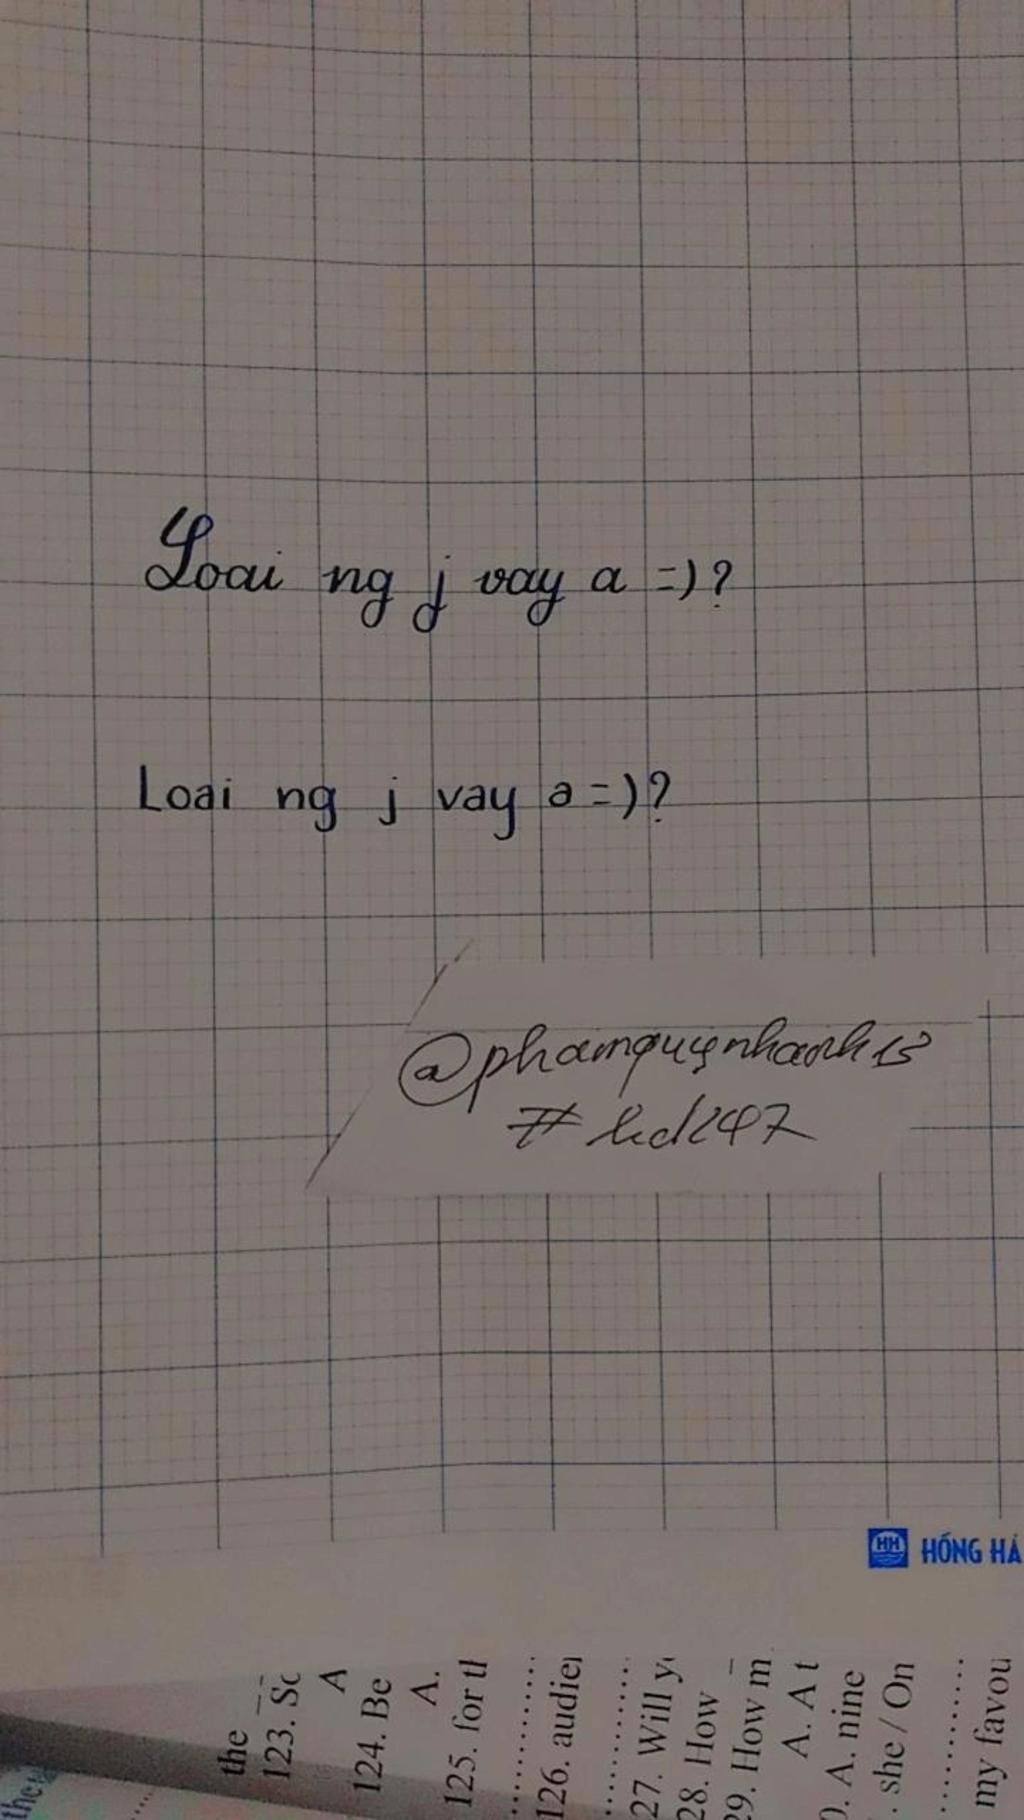 Loai ng j vay a =)?
Loai ng j vay a =)?
@phamquynhanh13
HH HỒNG HÀ
the
123. Sc
A
124. Be
A.
125. for th
126. audien
27. Will y
28. How
29. How m
A. A t
0. A. nine
. she / On
my favou